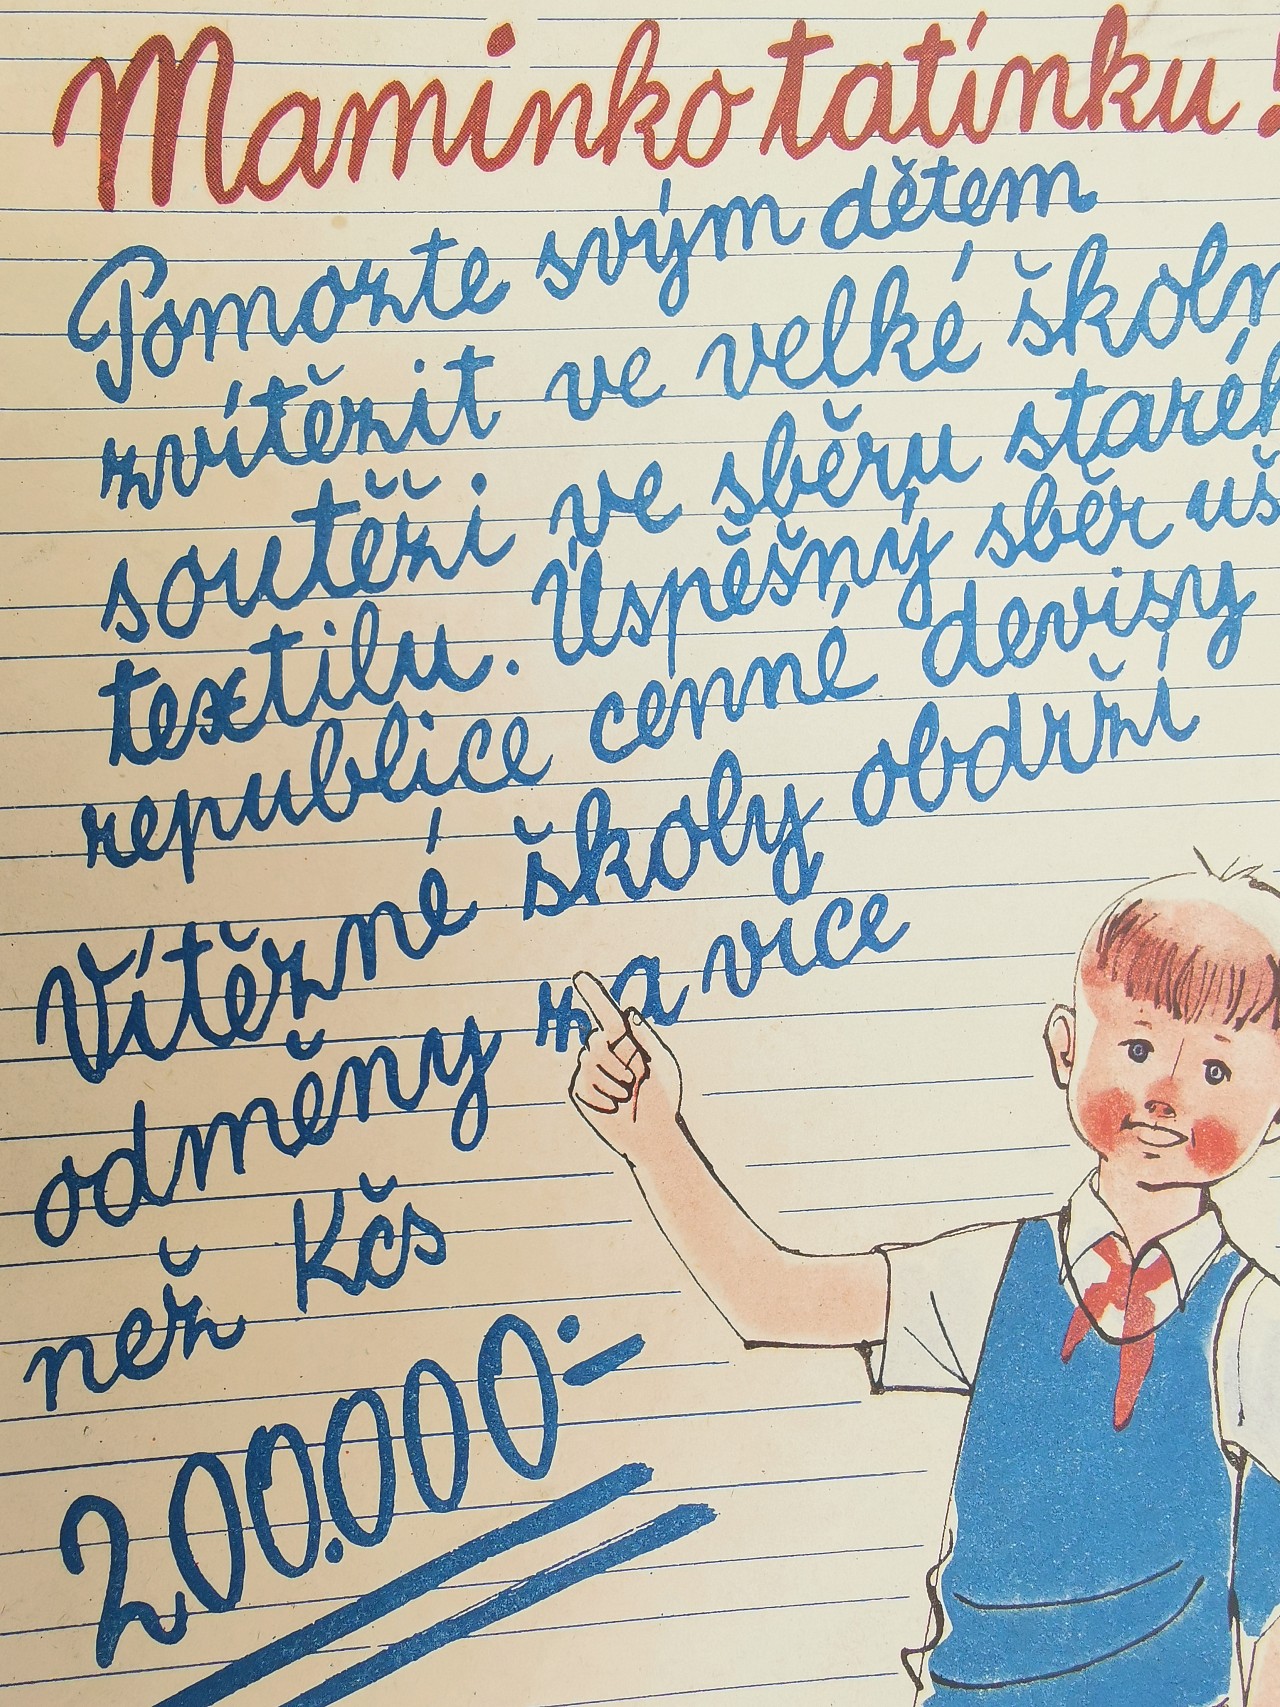 Maminko tatínku!
Pomozte svým dětem
zvítězit ve velké školn
soutěži ve sběru staréh
textilu. Úspěšný sběr uš
republice cenné devisy
Vítězné školy obdrží
odměny za více
než Kčs
200.000:-